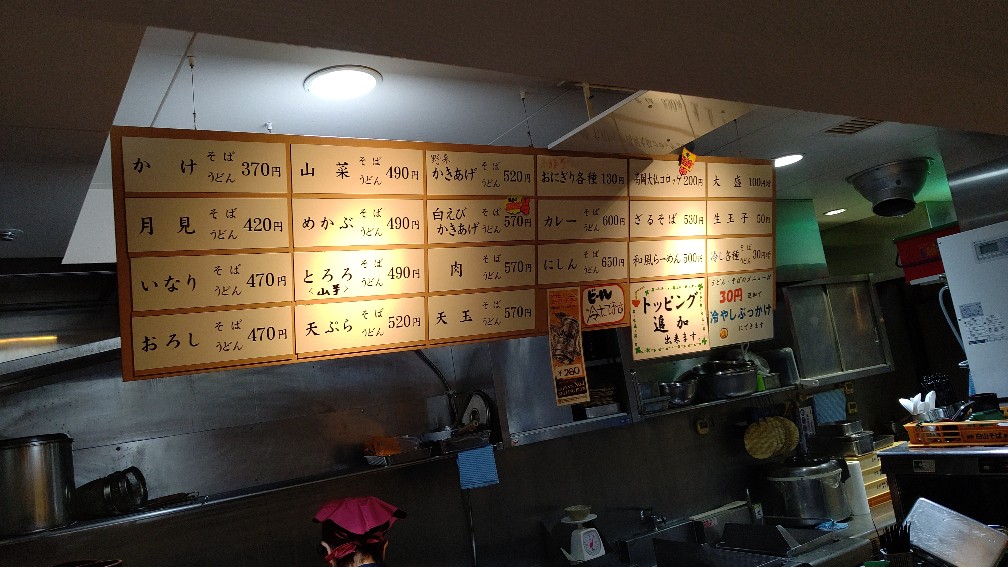 かけ そば うどん 370円
山菜 そば うどん 490円
野菜 かきあげ そば うどん 520円
おにぎり各種 130円
高岡大仏コロッケ 200円
大盛 100円増
月見 そば うどん 420円
めかぶ そば うどん 490円
白えび かきあげ そば うどん 570円
カレー そば うどん 600円
ざるそば 530円
生玉子 50円
いなり そば うどん 470円
とろろ <山芋> そば うどん 490円
肉 そば うどん 570円
にしん そば うどん 650円
和風らーめん 500円
冷し各種 そば うどん 30円増
おろし そば うどん 470円
天ぷら そば うどん 520円
天玉 そば うどん 570円
ビール
¥260
トッピング
追加
出来ます
うどん・そばのメニューが
30円
冷やしぶっかけ
にできます